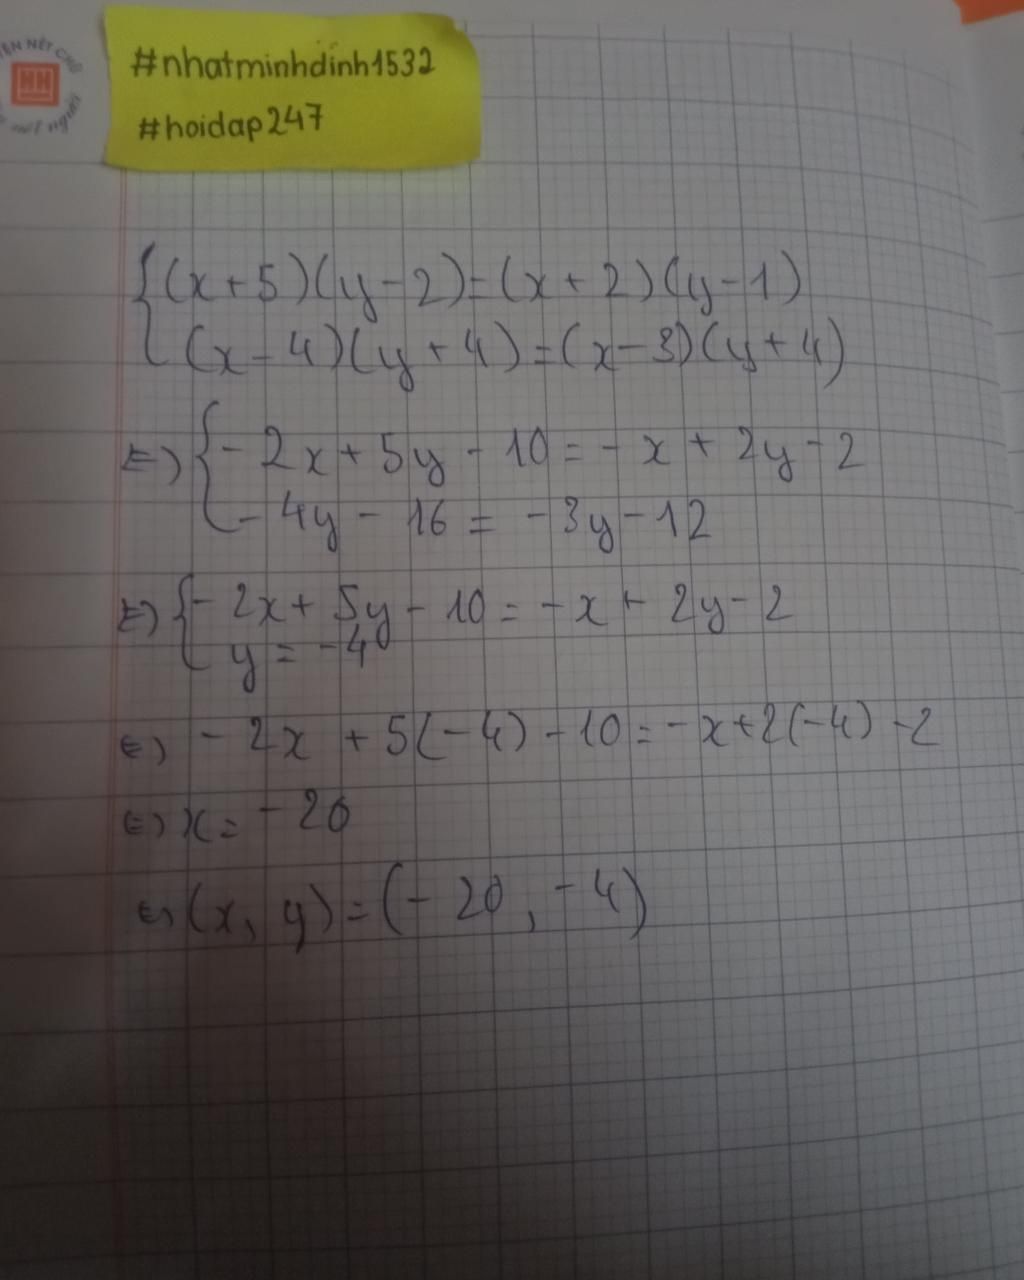 #nhatminhdinh1532
#hoidap247
{(x+5)(y-2)=(x+2)(y-1)
(x-4)(y+4)=(x-3)(y+4)
⇔ {-2x+5y-10=-x+2y-2
-4y-16=-3y-12
⇔ {-2x+5y-10=-x+2y-2
y=-4
⇔ -2x+5(-4)-10=-x+2(-4)-2
⇔ x=-20
⇔ (x, y)=(-20, -4)